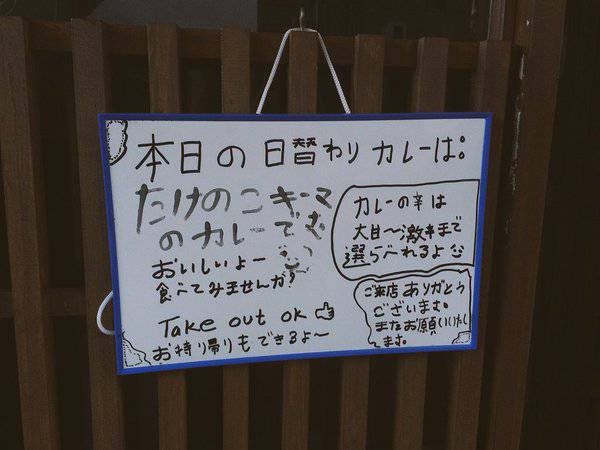 本日の日替わりカレーは:
たけのこキーマ
のカレーでむ
おいしいよー
食べてみませんか?
Take out OK
お持ち帰りもできるよ〜
カレーの辛は
大甘〜激辛まで
選らべれるよ
ご来店ありがとう
ございます。
またお願いいたし
ます。